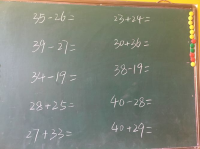 35-26= 23+24=
39-27= 30+36=
34-19= 38-19=
28+25= 40-28=
27+33= 40+29=